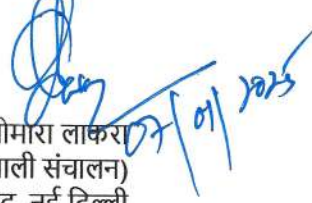 07/01/2025
ोमारा लाकरा
ाली संचालन)
नई दिल्ली